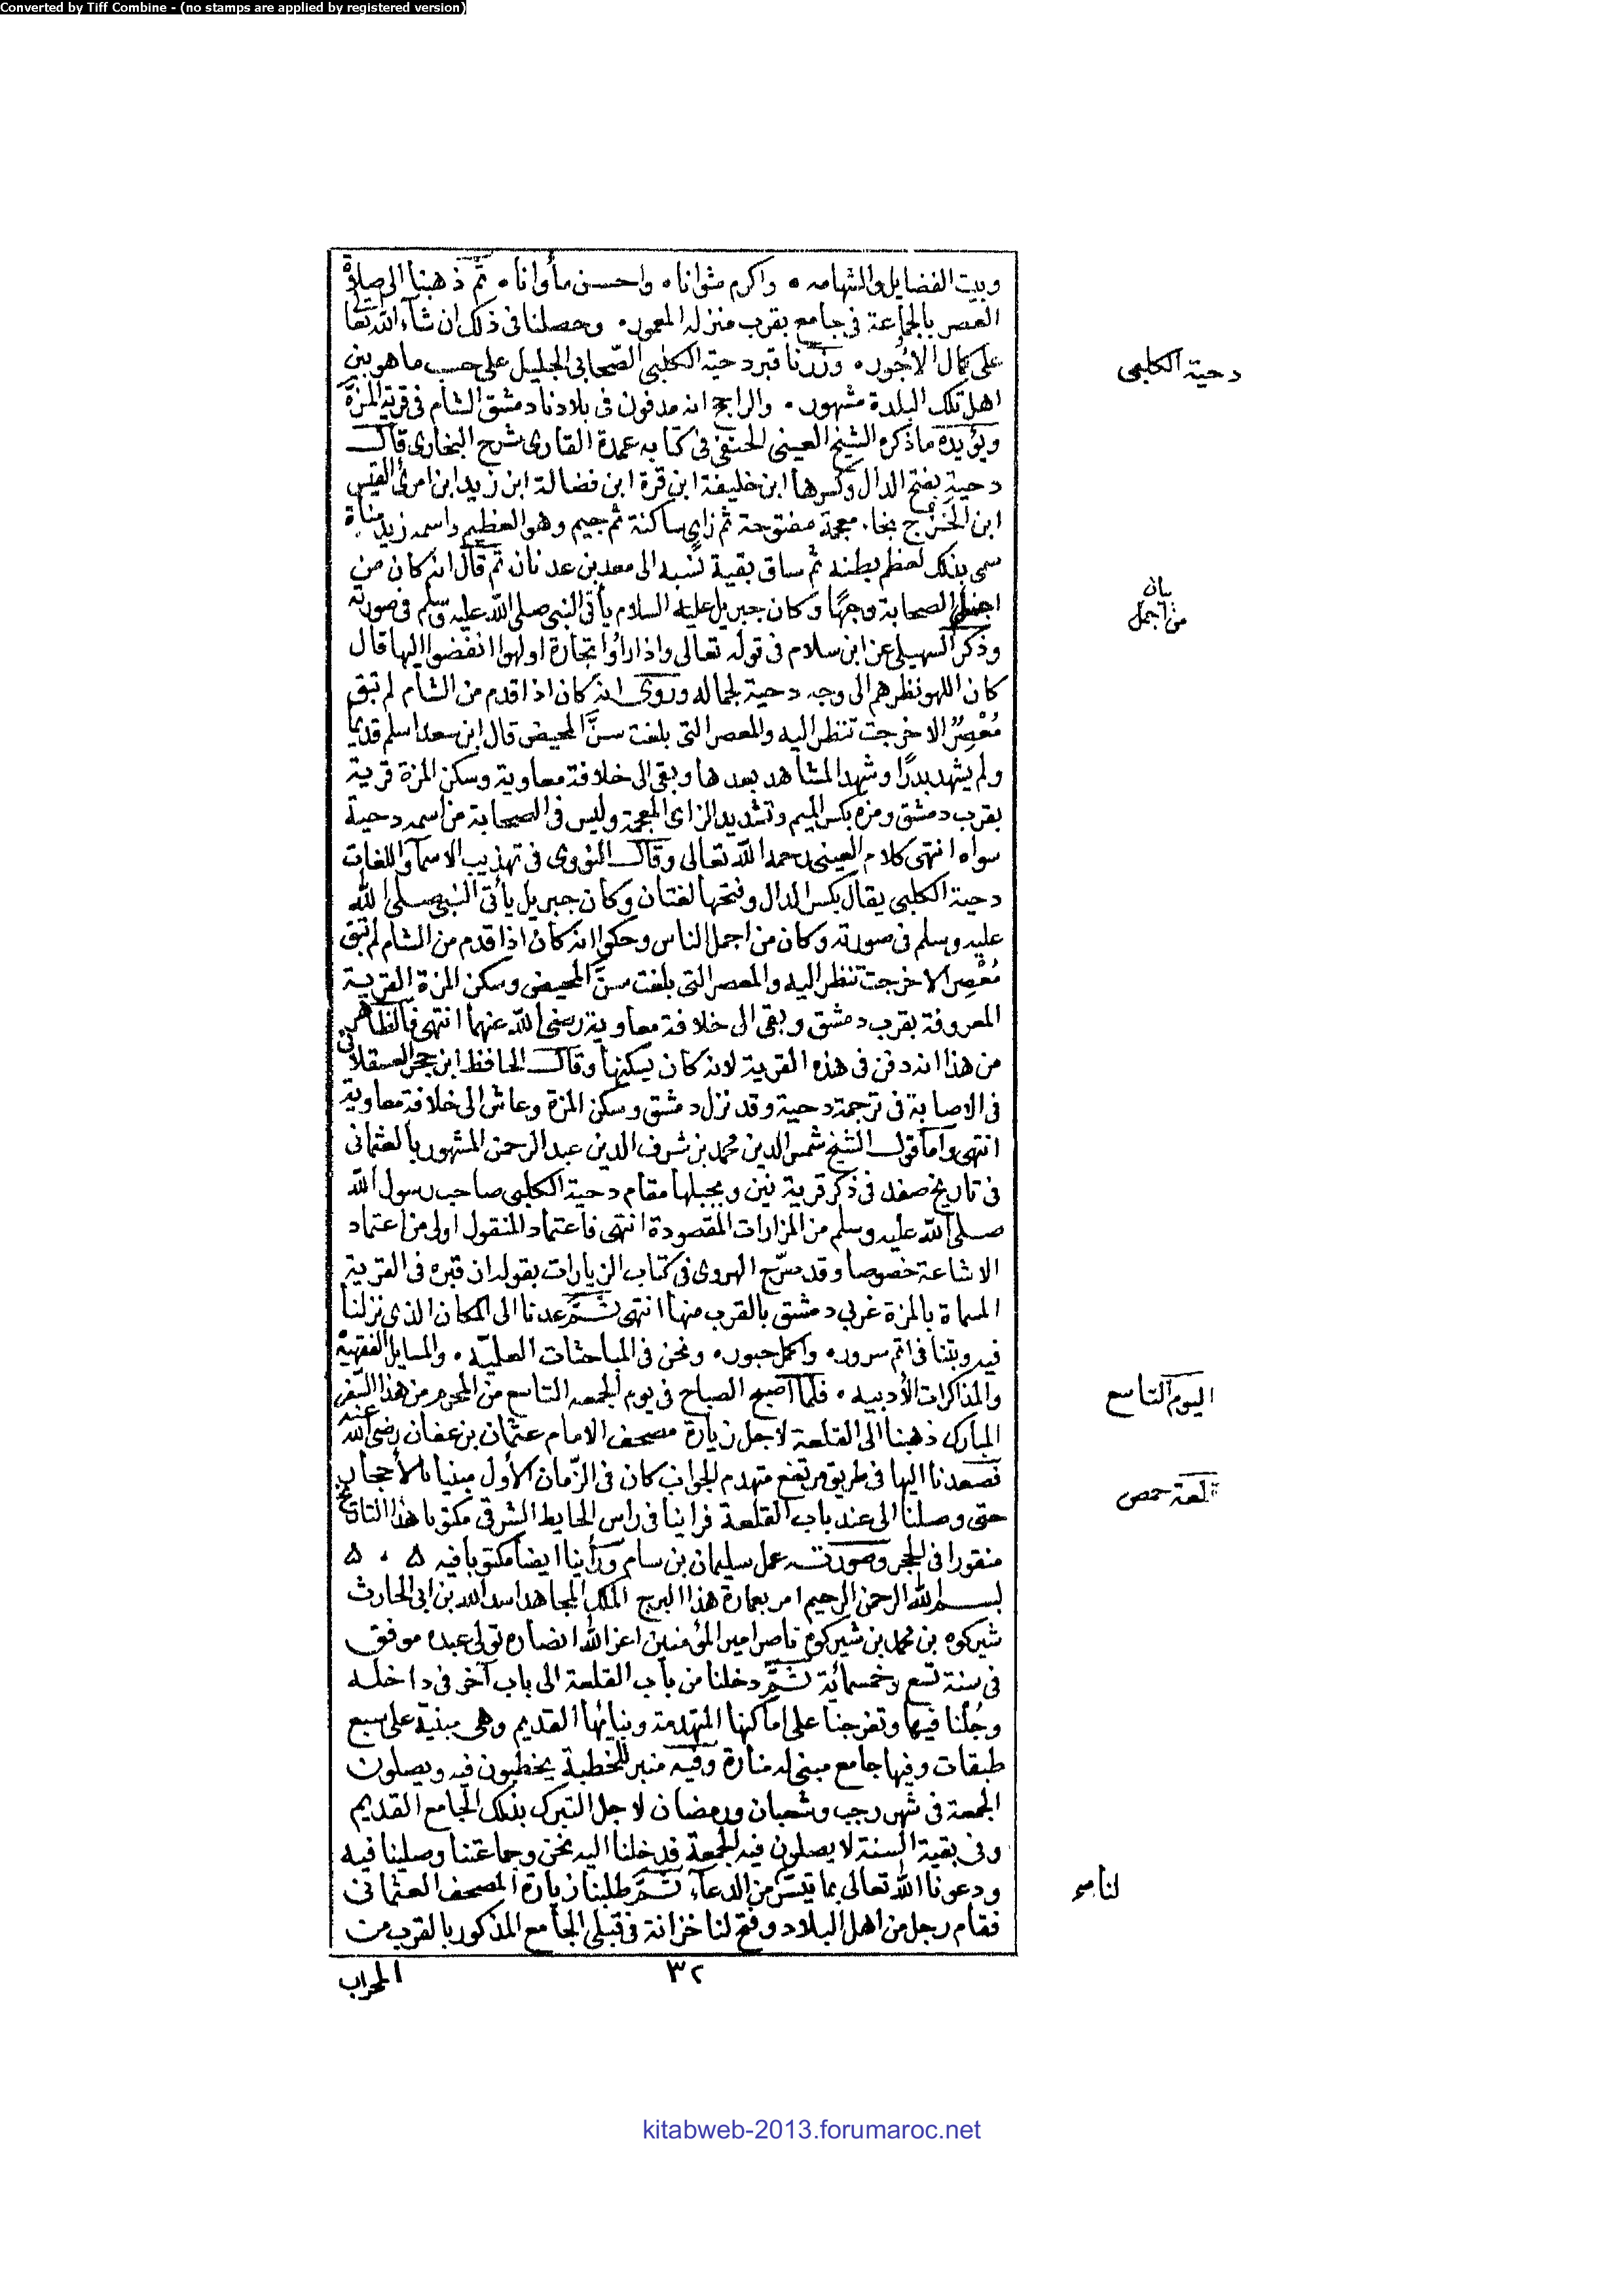 Converted by Tiff Combine - (no stamps are applied by registered version)
وبيت الفضايل والشهامه ۰ واكرم مثوانا ۰ واحسن مأوانا ۰ ثم ذهبنا الى صلاة
العصر بالجماعة فى جامع بقرب منزله المعمور ۰ وحصلنا فى ذلك ان شآء الله تعالى
على كمال الاجور ۰ وزرنا قبر دحية الكلبى الصحابى الجليل على حسب ما هو بين
دحية الكلبى
اهل تلك البلدة مشهور ۰ والراجح انه مدفون فى بلادنا دمشق الشام فى قرية المزة
ويؤيده ما ذكره الشيخ العينى الحنفى فى كتابه عمدة القارى شرح البخارى قال
دحية بفتح الدال وكسرها ابن خليفة ابن قرة ابن فضالة ابن زيد ابن امرئ القيس
ابن الخزرج بخاء معجمة مفتوحة ثم زاى ساكنة ثم جيم وهو العظيم واسمه زيد مناة
سمى بذلك لعظم بطنه ثم ساق بقية نسبه الى معد بن عدنان ثم قال انه كان من
بيان
من اجمل
اجمل الصحابة وجها وكان جبريل عليه السلام يأتى النبى صلى الله عليه وسلم فى صورته
وذكر السهيلى عن ابن سلام فى قوله تعالى واذا راوا تجارة او لهوا انفضوا اليها قال
كان اللهو نظرهم الى وجه دحية لجماله وروى انه كان اذا قدم من الشام لم تبق
مُعْصِرٌ الا خرجت تنظر اليه والمعصر التى بلغت سنَّ المحيض قال ابن سعد اسلم قديما
ولم يشهد بدرًا وشهد المشاهد بعدها وبقى الى خلافة معاوية وسكن المزة قرية
بقرب دمشق ومزه بكسر الميم وتشديد الزاى المعجمة وليس فى الصحابة من اسمه دحية
سواه انتهى كلام العينى رحمه الله تعالى وقال النووى فى تهذيب الاسمآ واللغات
دحية الكلبى يقال بكسر الدال وفتحها لغتان وكان جبريل يأتى النبى صلى الله
عليه وسلم فى صورته وكان من اجمل الناس وحكوا انه كان اذا قدم من الشام لم تبق
مُعْصِر الا خرجت تنظر اليه والمعصر التى بلغت سنَّ المحيض وسكن المزة القرية
المعروفة بقرب دمشق وبقى الى خلافة معاوية رضى الله عنهما انتهى فالظاهر
من هذا انه دفن فى هذه القرية لانه كان يسكنها وقال الحافظ ابن حجر العسقلانى
فى الاصابة فى ترجمة دحية وقد نزل دمشق وسكن المزة وعاش الى خلافة معاوية
انتهى واما قول الشيخ شمس الدين محمد بن شرف الدين عبد الرحمن المشهور بالعثمانى
فى تاريخ صفد فى ذكر قرية نين وبجبلها مقام دحية الكلبى صاحب رسول الله
صلى الله عليه وسلم من المزارات المقصودة انتهى فاعتماد المنقول اولى من اعتماد
الاشاعة خصوصا وقد صرّح الهروى فى كتاب الزيارات بقوله ان قبره فى القرية
المسماة بالمزة غربي دمشق بالقرب منها انتهى ثــم عدنا الى المكان الذى نزلنا
فيه وبتنا فى اتم سرور ۰ واكمل حبور ۰ ونحن فى المباحثات العلميّة ۰ والمسايل الفقهية
والمذاكرات الأدبيه ۰ فلما اصبح الصباح فى يوم الجمعه التاسع من المحرم من هذا السفر
اليوم التاسع
المبارك ذهبنا الى القلعة لاجل زيارة مصحف الامام عثمان بن عفان رضى الله عنه
فصعدنا اليها فى طريق مرتفع متهدم الجوانب كان فى الزمان الأول مبنيا بالأحجار
قلعة حمص
حتى وصلنا الى عند باب القلعة فراينا فى راس الحايط الشرقى مكتوبا هذا التاريخ
منقورا فى الحجر وصورتــه عمل سليمان بن سام ورأينا ايضا مكتوبا فيه ۵ ۰ ۵
بســم الله الرحمن الرحيم امر بعمارة هذا البرج الملك المجاهد اسد الله بن ابى الحارث
شيركوه بن محمد بن شيركوه ناصر امير المؤمنين اعز الله انصاره تولى عبده موفق
فى سنة تسع وخمسمائة ثــم دخلنا من باب القلعة الى باب آخر فى داخله
وجُلْنا فيها وتفرجنا على اماكنها المتهدمة وبنيانها القديم وهى مبنية على سبع
طبقات وفيها جامع مبنى له منارة وفيه منبر للخطبة يخطبون فيه ويصلون
الجمعة فى شهر رجب وشعبان ورمضان لاجل التبرك بذلك الجامع القديم
وفى بقية السنة لا يصلون فيه الجمعة فدخلنا اليه نحن وجماعتنا وصلينا فيه
ودعونا الله تعالى بما تيسّر من الدعآء ثــم طلبنا زيارة المصحف العثمانى
لنا صح
فقام رجل من اهل البلاد وفتح لنا خزانة فى قبلى الجامع المذكور بالقرب من
المحراب
٣٢
kitabweb-2013.forumaroc.net